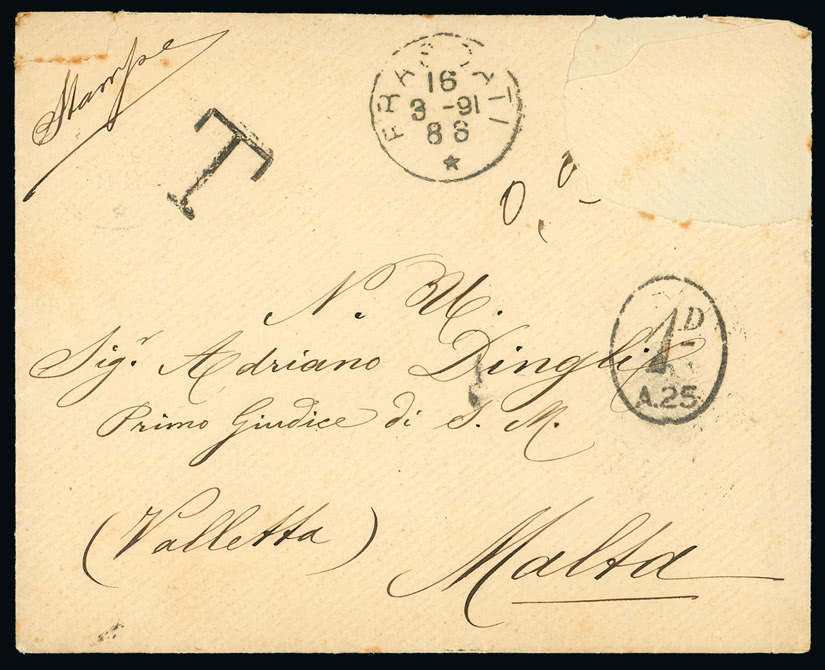 Stampe
T
FRASCATI
16
3 -91
8 S
N. U.
Sigr. Adriano Dingli
1D
A.25
Primo Giudice di S. M.
(Valletta)
Malta